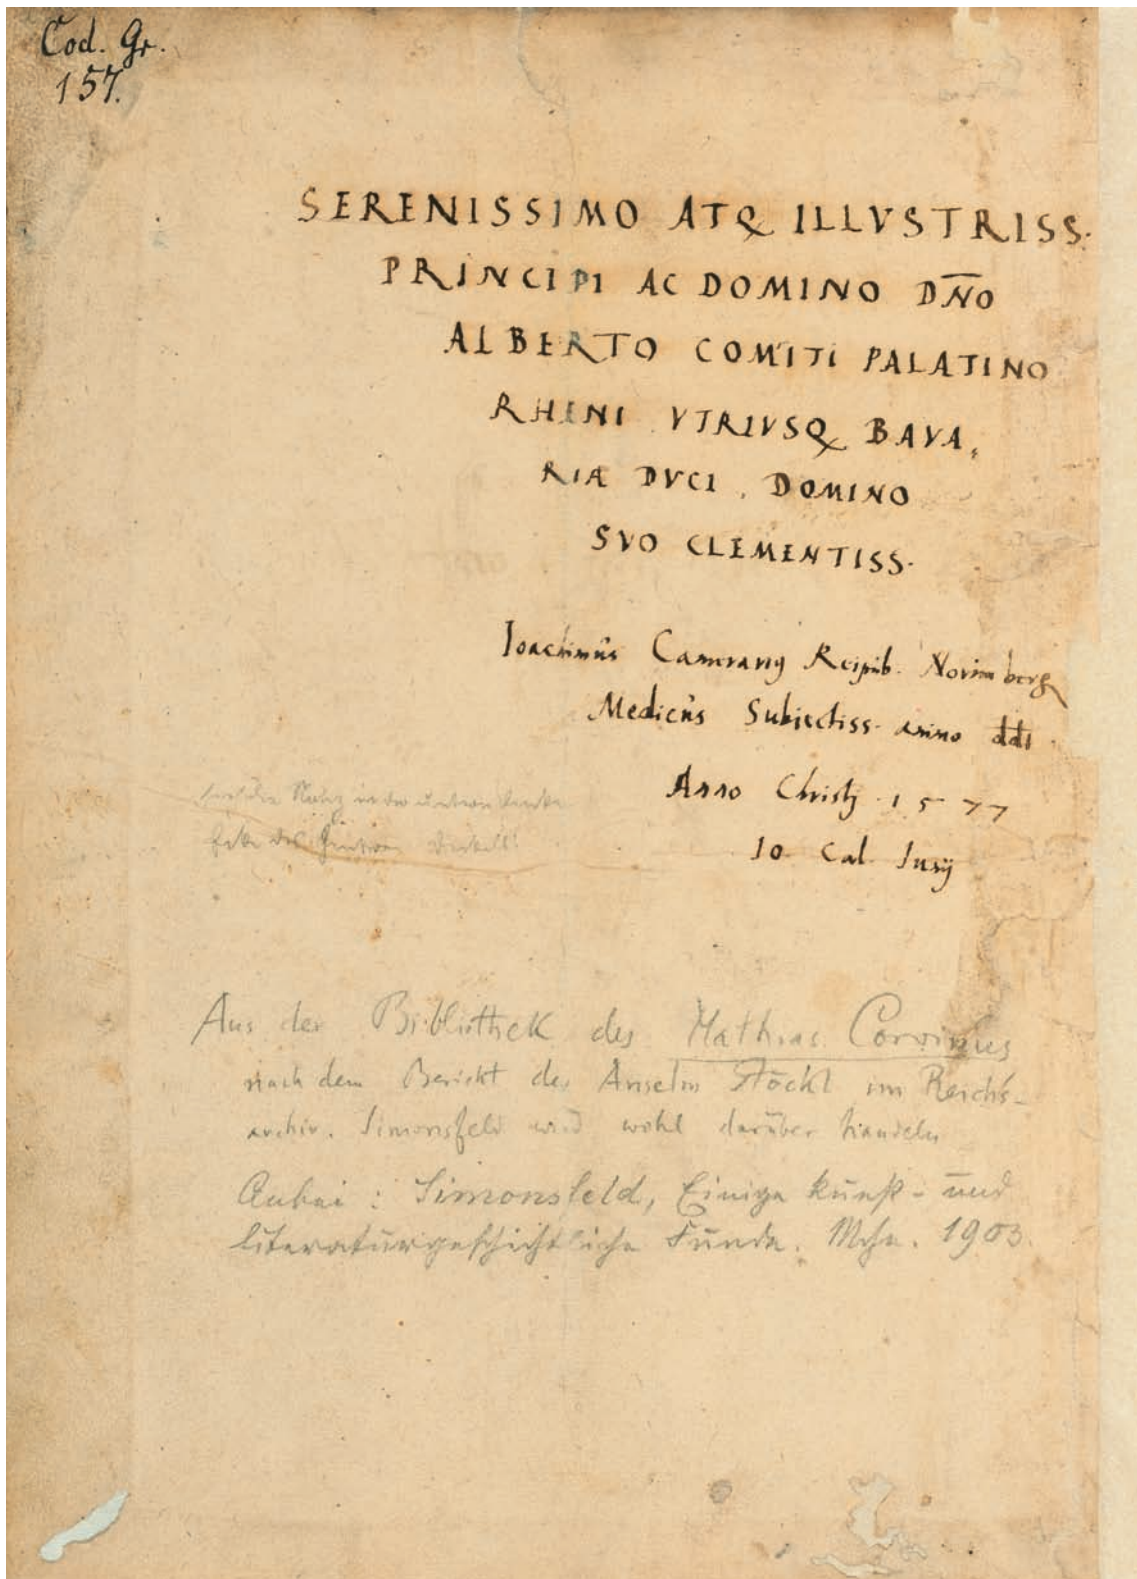 Cod. Gr.
157.
SERENISSIMO ATQ ILLVSTRISS.
PRINCIPI AC DOMINO DN̄O
ALBERTO COMITI PALATINO
RHENI VTRIVSQ BAVA,
RIÆ DVCI, DOMINO
SVO CLEMENTISS.
Ioachimus Camerariꝰ Reipub. Norimberg
Medicus Subiectiss. animo ddt
Anno Christj 1577
10. Cal. Iunij
Notiz in der unteren
Aus der Bibliothek des Mathias Corvinus
nach dem Bericht des Anselm Stöckl im Reichs-
archiv. Simonsfeld wird wohl darüber handeln
Anbei: Simonsfeld, Einige kunst- und
literaturgeschichtliche Funde. Mchn. 1903.